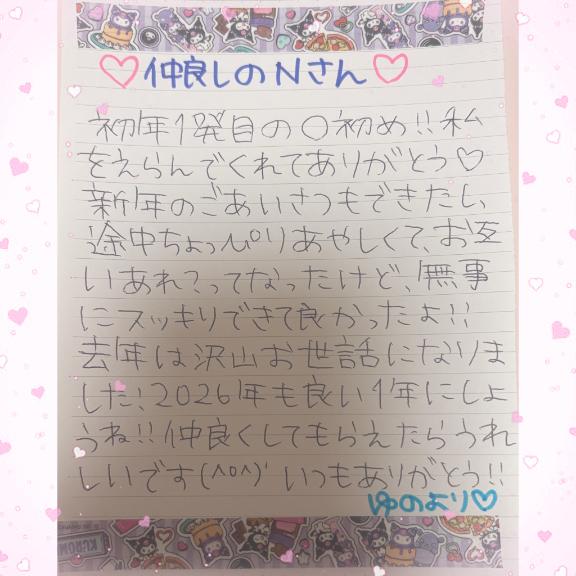 ♡仲良しのNさん♡
初年1発目の〇初め!!私
をえらんでくれてありがとう♡
新年のごあいさつもできたし、
途中ちょっぴりあやしくて、お互
いあれ？ってなったけど、無事
にスッキリできて良かったよ!!
去年は沢山お世話になりま
した！2026年も良い1年にしよ
うね!!仲良くしてもらえたらうれ
しいです(^o^)' いつもありがとう!!
ゆのより♡
KUROMI